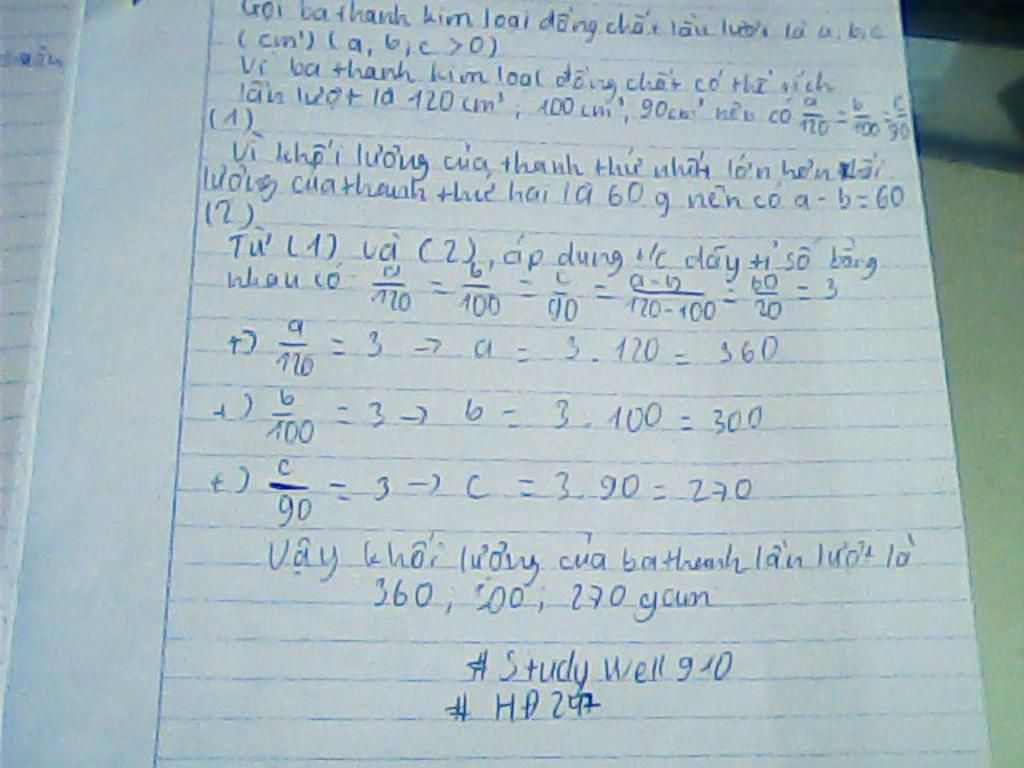 Gọi ba thanh kim loại đồng chất lần lượt là a, b, c
(cm³) (a, b, c > 0)
Vì ba thanh kim loại đồng chất có thể tích
lần lượt là 120 cm³; 100 cm³; 90 cm³ nên có a/120 = b/100 = c/90
(1)
Vì khối lượng của thanh thứ nhất lớn hơn khối
lượng của thanh thứ hai là 60 g nên có a - b = 60
(2)
Từ (1) và (2), áp dụng t/c dãy tỉ số bằng
nhau có a/120 = b/100 = c/90 = a-b/120-100 = 60/20 = 3
+) a/120 = 3 → a = 3 . 120 = 360
+) b/100 = 3 → b = 3 . 100 = 300
+) c/90 = 3 → c = 3 . 90 = 270
Vậy khối lượng của ba thanh lần lượt là
360 ; 300 ; 270 gam
# Study well 910
# HĐ 247